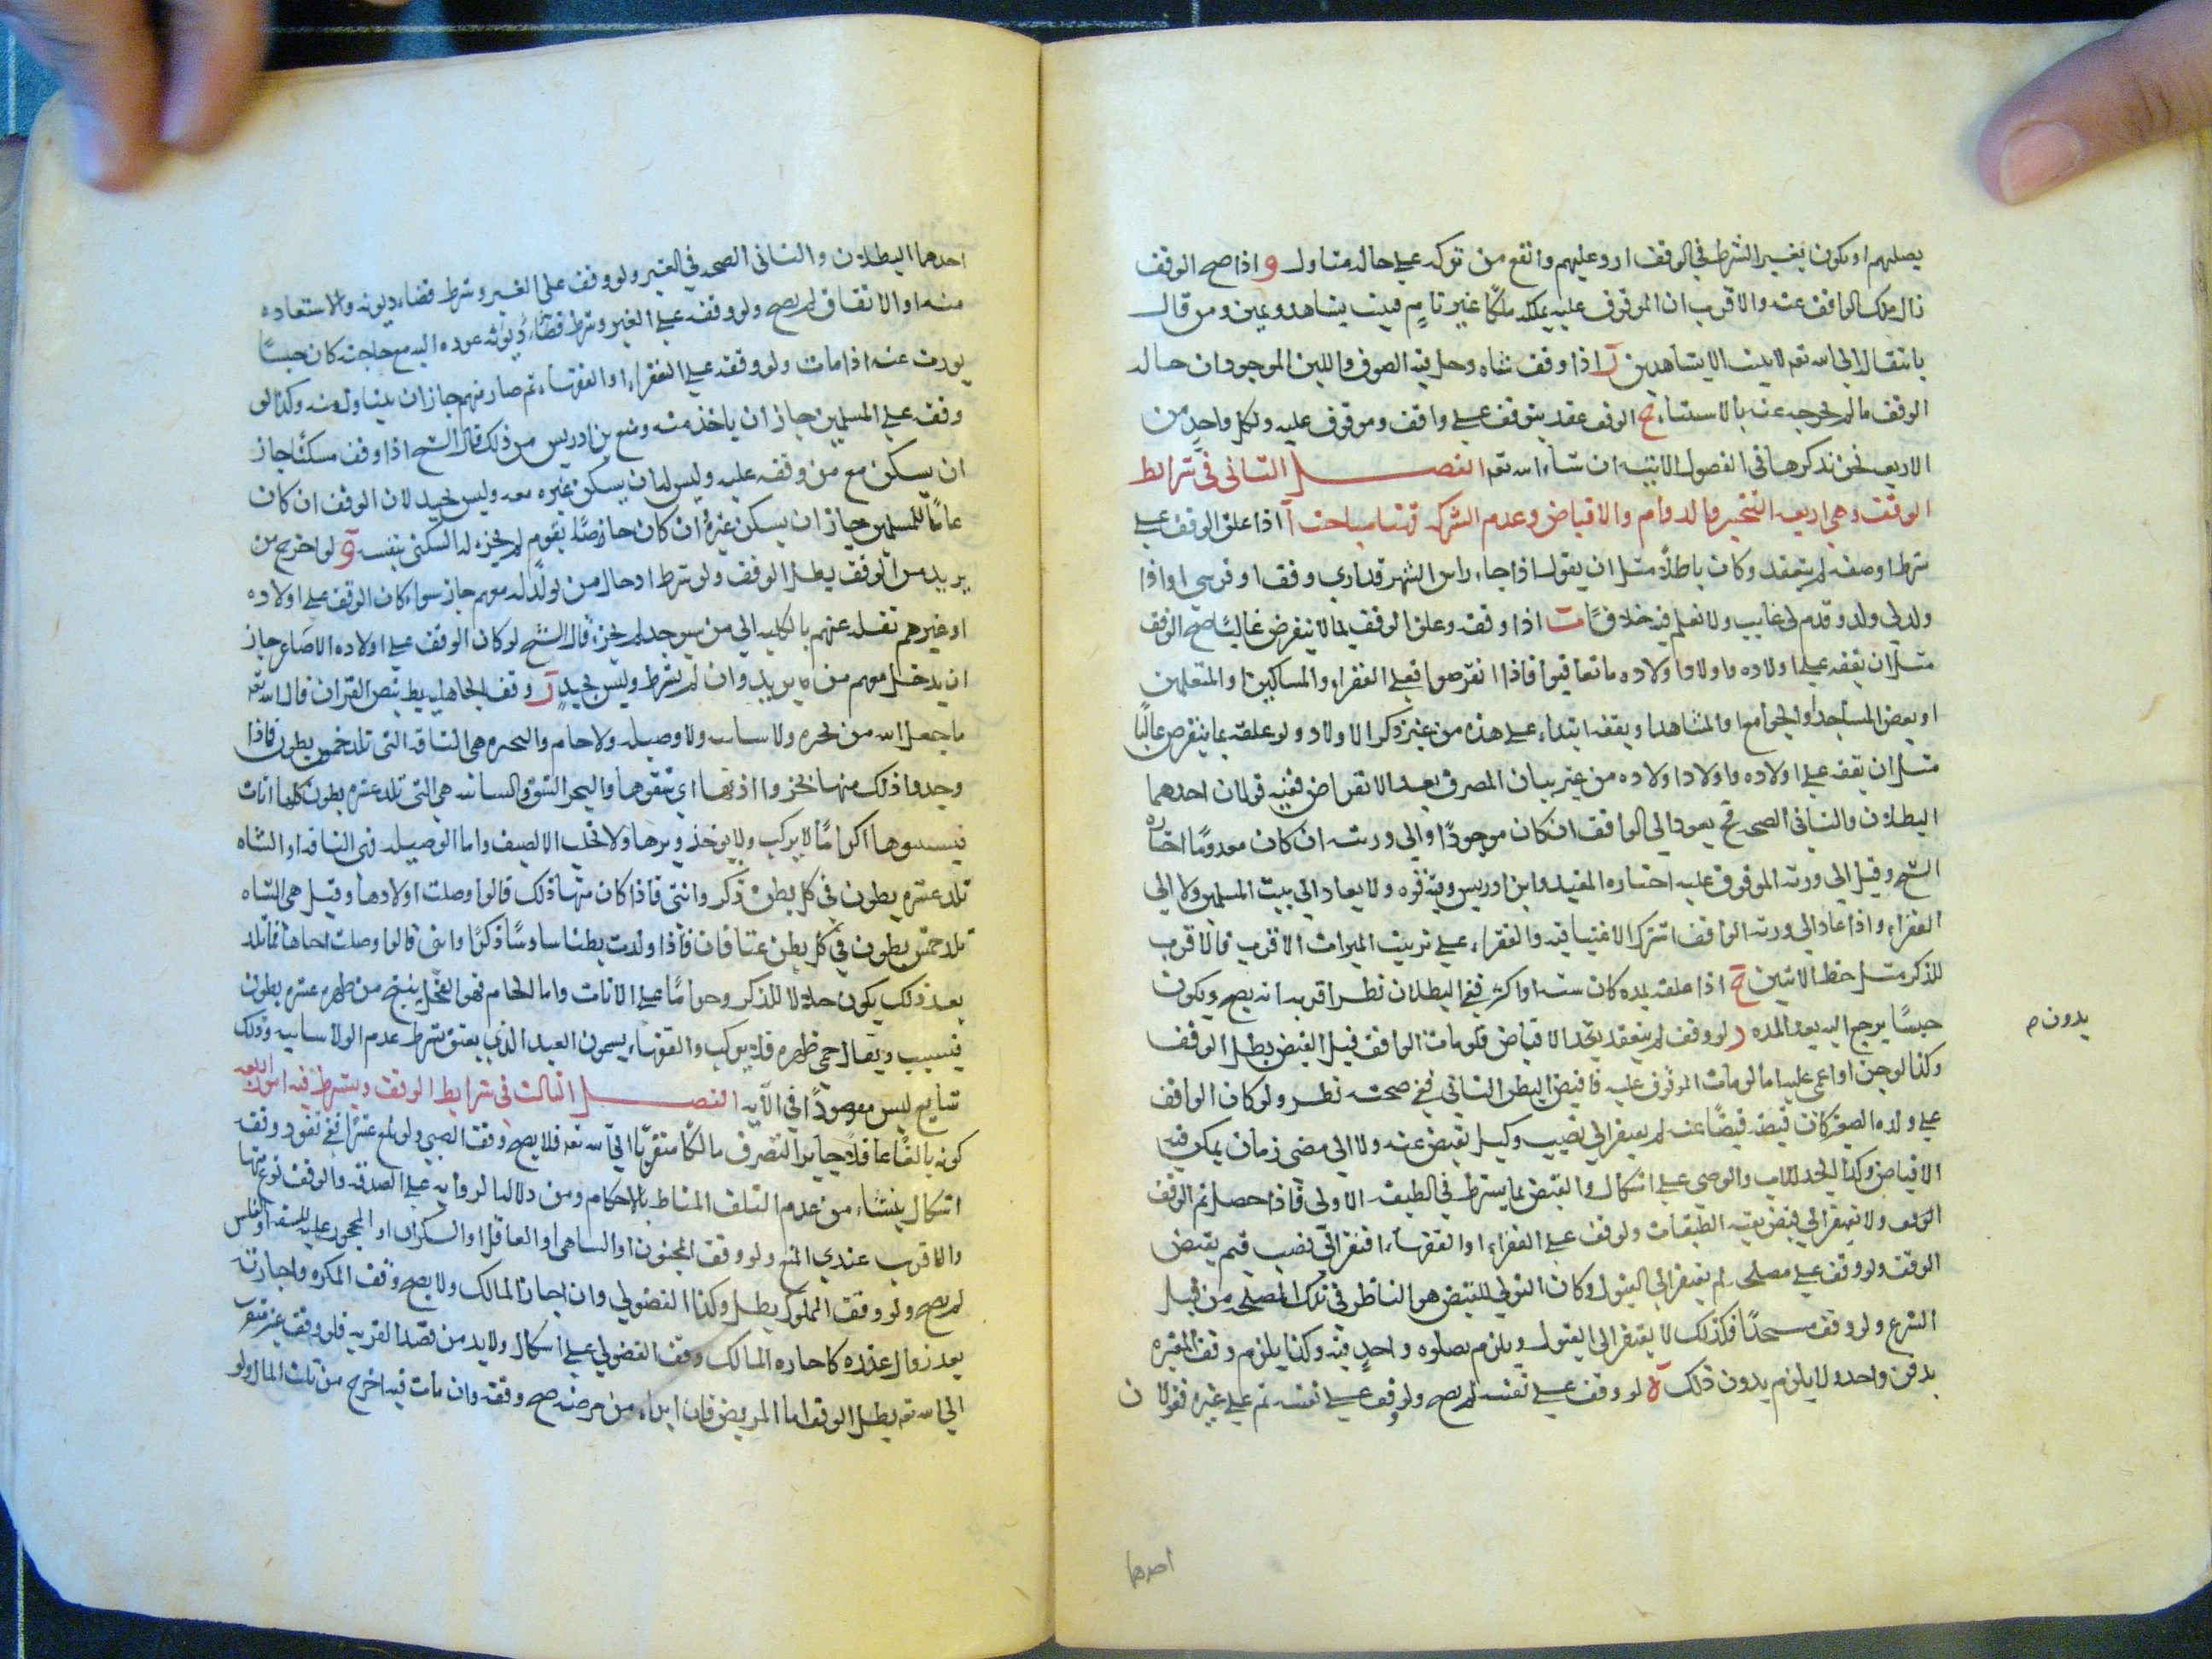 يصليهم او يكون تغيير الشرط في الوقف ارد عليهم وانفع من تركه على حاله متاول و اذا صح الوقف
زال ملك الواقف عنه والاقرب ان الموقوف عليه يملكه ملكا غير تام فيثبت بشاهد ويمين ومن قال
بانتقاله الى الله تعه لا يثبت الا بشاهدين ز اذا وقف شاه دخل فيه الصوف واللبن الموجودان حاله
الوقف ما لم يخرجه عنه بالاستثناء ح الوقف عقد يتوقف على واقف وموقوف عليه ولكل واحد من
الاربعه نحن نذكرها في الفصول الاتيه ان شاء الله تعه الفصل الثاني في شرايط
الوقف وهي اربعه التنجيز والدوام والاقباض وعدم الشركه فهنا مباحث آ اذا علق الوقف على
شرط او صفه لم ينعقد وكان باطلا مثل ان يقول اذا جاء راس الشهر فداري وقف او فرسي او اذا
ولد لي ولد وقدم لي غايب ولا نعلم فيه خلافا ب اذا وقفه وعلق الوقف بما لا ينقرض غالبا صح الوقف
مثل ان يقفه على اولاده واولاد اولاده ما تعاقبوا فاذا انقرضوا فعلى الفقراء والمساكين او المتعلمين
او بعض المساجد او الجوامع او المشاهد او يقفه ابتداء على هذه من غير ذكر الاولاد ولو علقه بما ينقرض غالبا
مثل ان يقف على اولاده واولاد اولاده من غير بيان المصرف بعد الانقراض ففيه قولان احدهما
البطلان والثاني الصحه فح يعود الى الواقف ان كان موجودا او الى ورثته ان كان معدوما اختاره
الشيخ وقيل الى ورثه الموقوف عليه اختاره المفيد وابن ادريس وفيه قوه ولا يعاد الى بيت المسلمين ولا الى
الفقراء واذا عاد الى ورثه الواقف اشترك الاغنياء فيه والفقراء على ترتيب الميراث الاقرب فالاقرب
للذكر مثل حظ الانثيين ج اذا علقه بمده كان سنه او اكثر ففي البطلان نظر اقربه انه يصح ويكون
حبسا يرجع اليه بعد المده د لو وقف لم ينعقد الاقباض فلو مات الواقف قبل القبض بطل الوقف
بدون م
وكذا لو جن او اغمي عليه اما لو مات الموقوف عليه فاقبض البطن الثاني ففي صحته نظر ولو كان الواقف
على ولده الصغير كان قبضه قبضا عنه لم يفتقر الى نصيب وكيل يقبض عنه ولا الى مضى زمان يمكن فيه
الاقباض وكذا الجد للاب والوصي على اشكال والقبض بما يشترط في الطبقه الاولى فاذا حصل تم الوقف
ولا يفتقر الى قبض بقيه الطبقات ولو وقف على الفقراء او الفقهاء افتقر الى نصب قيم يقبض
الوقف ولو وقف على مصلحه لم يفتقر الى القبول وكان المتولي للقبض هو الناظر في تلك المصلحه من قبل
الشرع ولو وقف مسجدا فكذلك لا يفتقر الى القبول ويلزم بصلوه واحد فيه وكذا يلزم وقف المقبره
بدفن واحد ولا يلزم بدون ذلك ه لو وقف على نفسه لم يصح ولو وقف على نفسه ثم على غيره فقولان
احدهما
احدهما البطلان والثاني الصحه في الغير ولو وقف على الغير وشرط قضاء ديونه والاستعاده
منه او الانفاق لم يصح ولو وقفه على الغير وشرط قضاء ديونه عوده اليه مع حاجته كان حبسا
يورث عنه اذا مات ولو وقفه على الفقراء او الفقهاء ثم صار منهم جاز ان يتناول منه وكذا لو
وقفه على المسلمين جاز ان ياخذ منه ومنع بن ادريس من ذلك قال الشيخ اذا وقف مسكنا جاز
ان يسكن مع من وقفه عليه وليس له ان يسكن غيره معه وليس بجيد لان الوقف ان كان
عاما للمسلمين جاز ان يسكن غيره ان كان خاصا بقوم لم يجزه له السكنى بنفسه و لو اخرج من
يريد من الوقف بطل الوقف ولو شرط ادخال من يولد له معهم جاز سواء كان الوقف على اولاده
او غيرهم نقله عنهم بالكليه الى من سيوجد لم يجز قال الشيخ لو كان الوقف على اولاده الاصاغر جاز
ان يدخل معهم من يريد وان لم يشرط وليس بجيد ز وقف الجاهليه بطل بنص القران قال الله تعه
ما جعل الله من بحيره ولا سائبه ولا وصيله ولا حام والبحيره هي الناقه التي تلد خمس بطون فاذا
وجدوا ذلك منها بحروا اذنها اي شقوها والبحر الشق والسائبه هي التي تلد عشره بطون كلها اناث
فيسيبوها اكراما لا يركب ولا يوخذ وبرها ولا تحلب الا لضيف واما الوصيله فهي الناقه او الشاه
تلد عشره بطون في كل بطن ذكر وانثى فاذا كان منها ذلك قالوا وصلت اولادها وقيل هي الشاه
تلد خمس بطون في كل بطن عناقان فاذا ولدت بطنا سادسا ذكرا وانثى قالوا وصلت اخاها فما تلد
بعد ذلك يكون حلالا للذكر وحراما على الاناث واما الحام فهو الفحل ينتج من ظهره عشره بطون
فيسيب ويقال حمى ظهره فلا يركب والفقهاء يسمون العبد الذي يعتق بشرط عدم الولاء سايبه وذلك
شايع ليس مقصودا في الآيه الفصل الثالث في شرايط الوقف ويشترط فيه امور اربعه
كونه بالغا عاقلا جايز التصرف مالكا متقربا الى الله تعه فلا يصح وقف الصبي ولو بلغ عشرا ففي نفوذ وقفه
اشكال ينشاء من عدم التلف المناط بالاحكام ومن دلاله الروايه على الصدقه والوقف نوع منها
والاقرب عندي المنع ولو وقف المجنون او الساهي او الغافل او السكران او المحجور عليه للسفه او الفلس
لم يصح ولو وقف المملوك بطل وكذا الفضولي وان اجاز المالك ولا يصح وقف المكره واجازته
بعد زوال عذره كاجازه المالك وقف الفضولي على اشكال ولا بد من قصد القربه فلو وقف غير متقرب
الى الله تعه بطل الوقف اما المريض فان ابراء من مرضه صح وقفه وان مات فيه اخرج من ثلث المال ولو